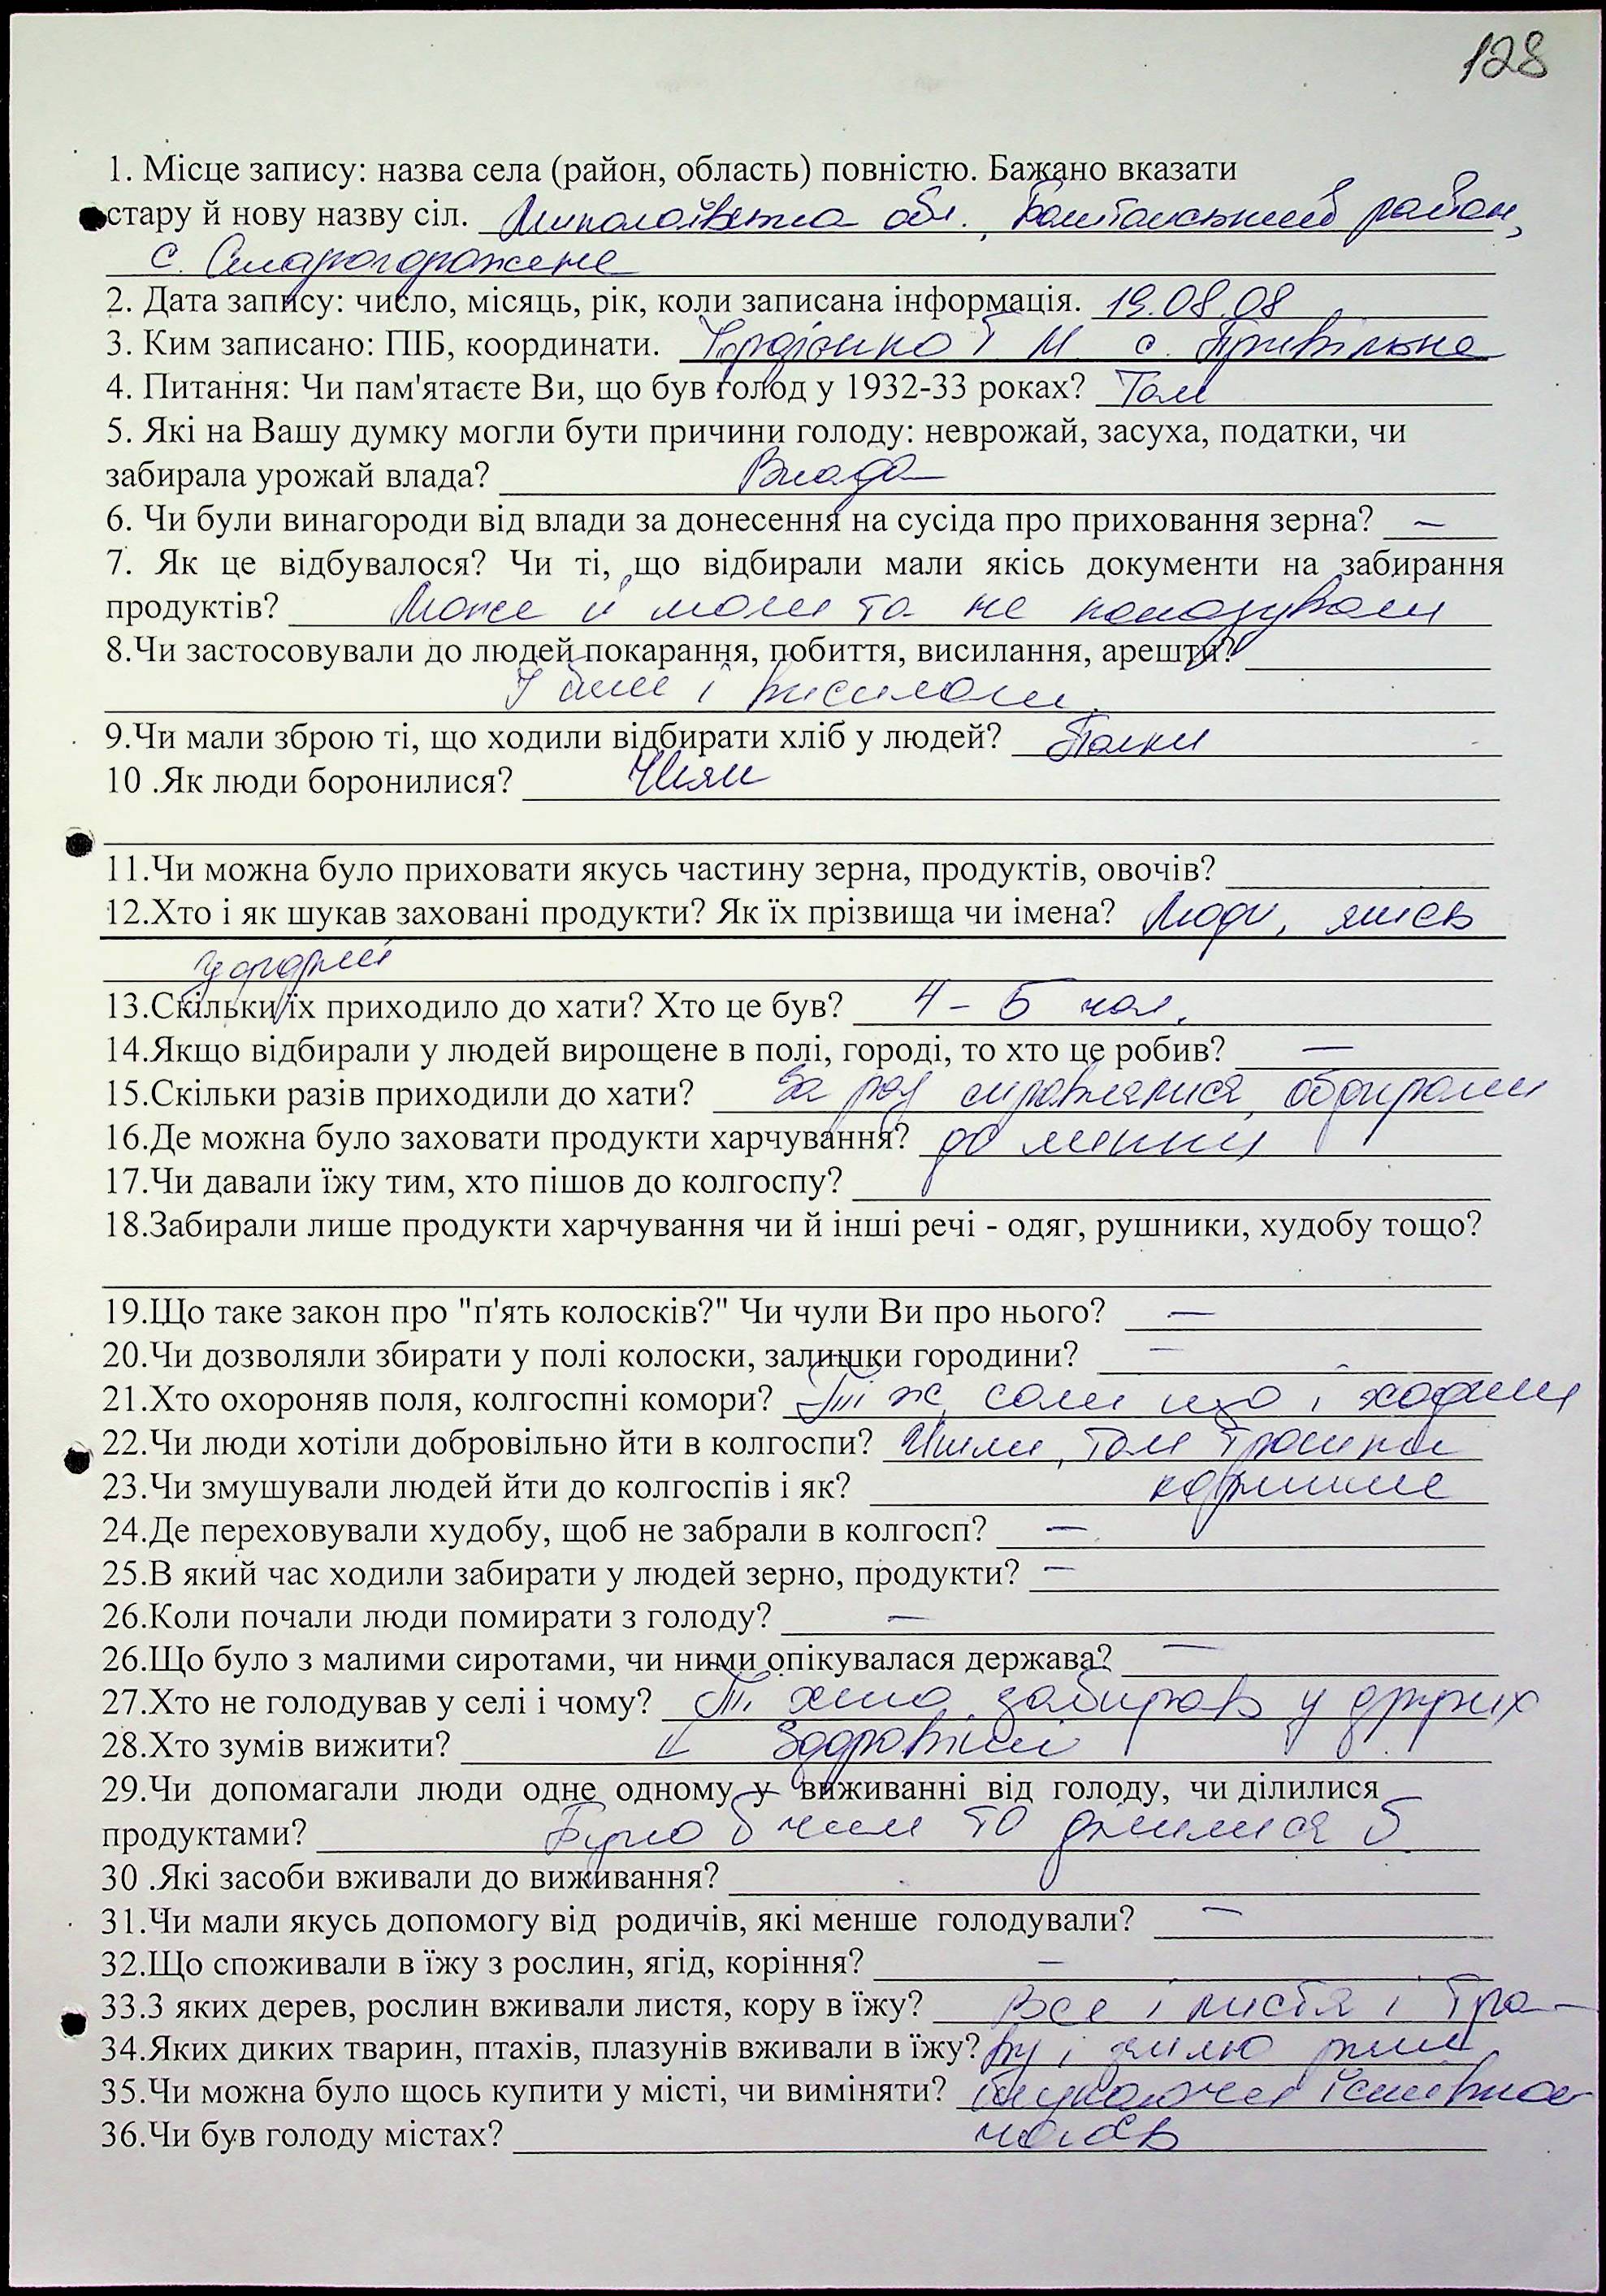 128
1. Місце запису: назва села (район, область) повністю. Бажано вказати
стару й нову назву сіл. Миколаївська обл., Баштанський район,
с. Старогорожене
2. Дата запису: число, місяць, рік, коли записана інформація. 19.08.08
3. Ким записано: ПІБ, координати. Гордієнко Т М. с. Привільне
4. Питання: Чи пам'ятаєте Ви, що був голод у 1932-33 роках? Так
5. Які на Вашу думку могли бути причини голоду: неврожай, засуха, податки, чи
забирала урожай влада? Влада
6. Чи були винагороди від влади за донесення на сусіда про приховання зерна? —
7. Як це відбувалося? Чи ті, що відбирали мали якісь документи на забирання
продуктів? Може й мали та не показували
8.Чи застосовували до людей покарання, побиття, висилання, арешти?
І били і висилали.
9.Чи мали зброю ті, що ходили відбирати хліб у людей? Палки
10 .Як люди боронилися?
11.Чи можна було приховати якусь частину зерна, продуктів, овочів?
12.Хто і як шукав заховані продукти? Як їх прізвища чи імена? Люди,
13.Скільки їх приходило до хати? Хто це був? 4 - 5 чол.
14.Якщо відбирали у людей вирощене в полі, городі, то хто це робив? —
15.Скільки разів приходили до хати? За раз справлялися, обдирали
16.Де можна було заховати продукти харчування? до
17.Чи давали їжу тим, хто пішов до колгоспу?
18.Забирали лише продукти харчування чи й інші речі - одяг, рушники, худобу тощо?
19.Що таке закон про "п'ять колосків?" Чи чули Ви про нього? —
20.Чи дозволяли збирати у полі колоски, залишки городини? —
21.Хто охороняв поля, колгоспні комори? Ті ж самі що і ходили
22.Чи люди хотіли добровільно йти в колгоспи? Йшли, там трошки
23.Чи змушували людей йти до колгоспів і як? кормили
24.Де переховували худобу, щоб не забрали в колгосп? —
25.В який час ходили забирати у людей зерно, продукти? —
26.Коли почали люди помирати з голоду? —
26.Що було з малими сиротами, чи ними опікувалася держава? —
27.Хто не голодував у селі і чому? Ті хто забирав у других
28.Хто зумів вижити? Здоровіші
29.Чи допомагали люди одне одному у виживанні від голоду, чи ділилися
продуктами? Було б чим то ділилися б
30 .Які засоби вживали до виживання?
31.Чи мали якусь допомогу від родичів, які менше голодували? —
32.Що споживали в їжу з рослин, ягід, коріння? —
33.З яких дерев, рослин вживали листя, кору в їжу? Все і листя і тра-
34.Яких диких тварин, птахів, плазунів вживали в їжу? ву і землю рили
35.Чи можна було щось купити у місті, чи виміняти? шукаючи
36.Чи був голоду містах?